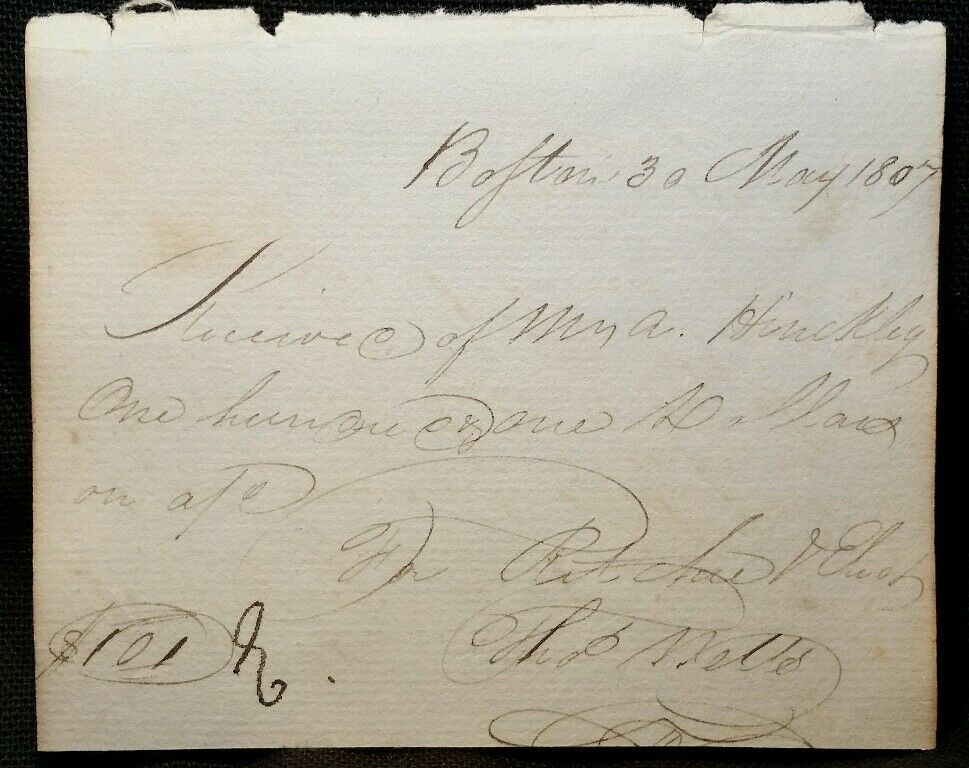 Boston 30 May 1807
Received of Mrs A. Hinckley
One hundred & one Dollars
on a/c
For Ritchie & Eliot
$101 Thos Wells